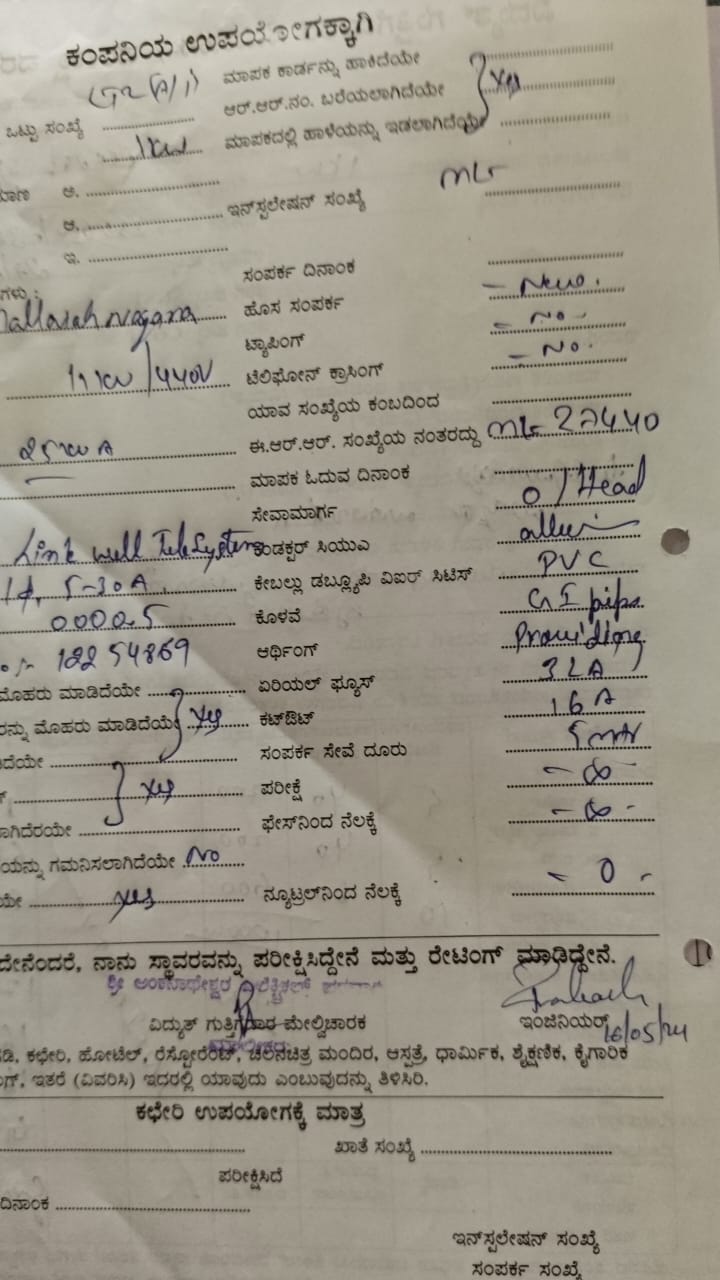 ಕಂಪನಿಯ ಉಪಯೋಗಕ್ಕಾಗಿ
ಮಾಪಕ ಕಾರ್ಡನ್ನು ಹಾಕಿದೆಯೇ
ಒಟ್ಟು ಸಂಖ್ಯೆ ಆರ್.ಆರ್.ನಂ. ಬರೆಯಲಾಗಿದೆಯೇ Yes
1KW ಮಾಪಕದಲ್ಲಿ ಹಾಳೆಯನ್ನು ಇಡಲಾಗಿದೆಯೇ
ಅ.
ಆ. ಇನ್‌ಸ್ಟಲೇಷನ್ ಸಂಖ್ಯೆ
ಇ.
ಸಂಪರ್ಕ ದಿನಾಂಕ
ಗಳು :
ಹೊಸ ಸಂಪರ್ಕ - New.
ಟ್ಯಾಪಿಂಗ್ - No -
11 KV/440V ಟೆಲಿಫೋನ್ ಕ್ರಾಸಿಂಗ್ - No.
ಯಾವ ಸಂಖ್ಯೆಯ ಕಂಬದಿಂದ
25 KVA ಈ.ಆರ್.ಆರ್. ಸಂಖ್ಯೆಯ ನಂತರದ್ದು 27440
— ಮಾಪಕ ಓದುವ ದಿನಾಂಕ
ಸೇವಾಮಾರ್ಗ O/Head
Link well TeleSystem ಕಂಡಕ್ಟರ್ ಸಿಯುಎ
5-30A ಕೇಬಲ್ಲು ಡಬ್ಲ್ಯೂಪಿ ವಿಐರ್ ಸಿಟಿಸ್ PVC
00005 ಕೊಳವೆ GI pipe
12254869 ಆರ್ಥಿಂಗ್ Providing
ಮೊಹರು ಮಾಡಿದೆಯೇ ಏರಿಯಲ್ ಫ್ಯೂಸ್ 32A
ರನ್ನು ಮೊಹರು ಮಾಡಿದೆಯೆ Yes ಕಟ್‌ಔಟ್ 16 A
ದೆಯೇ ಸಂಪರ್ಕ ಸೇವೆ ದೂರು 5 mtr
Yes ಪರೀಕ್ಷೆ - ∞ -
ಲಾಗಿದೆರಯೇ ಫೇಸ್‌ನಿಂದ ನೆಲಕ್ಕೆ - ∞ -
ಯನ್ನು ಗಮನಿಸಲಾಗಿದೆಯೇ No
ಯೇ Yes ನ್ಯೂಟ್ರಲ್‌ನಿಂದ ನೆಲಕ್ಕೆ - 0 -
ದೇನೆಂದರೆ, ನಾನು ಸ್ಥಾವರವನ್ನು ಪರೀಕ್ಷಿಸಿದ್ದೇನೆ ಮತ್ತು ರೇಟಿಂಗ್ ಮಾಡಿದ್ದೇನೆ.
ವಿದ್ಯುತ್ ಗುತ್ತಿಗೆದಾರ ಮೇಲ್ವಿಚಾರಕ ಇಂಜಿನಿಯರ್ 16/05/24
ಡಿ, ಕಛೇರಿ, ಹೋಟೆಲ್, ರೆಸ್ಟೋರೆಂಟ್, ಚಲನಚಿತ್ರ ಮಂದಿರ, ಆಸ್ಪತ್ರೆ, ಧಾರ್ಮಿಕ, ಶೈಕ್ಷಣಿಕ, ಕೈಗಾರಿಕ
ಗ್, ಇತರೆ (ವಿವರಿಸಿ) ಇದರಲ್ಲಿ ಯಾವುದು ಎಂಬುವುದನ್ನು ತಿಳಿಸಿರಿ.
ಕಛೇರಿ ಉಪಯೋಗಕ್ಕೆ ಮಾತ್ರ
ಖಾತೆ ಸಂಖ್ಯೆ
ಪರೀಕ್ಷಿಸಿದೆ
ದಿನಾಂಕ
ಇನ್‌ಸ್ಟಲೇಷನ್ ಸಂಖ್ಯೆ
ಸಂಪರ್ಕ ಸಂಖ್ಯೆ